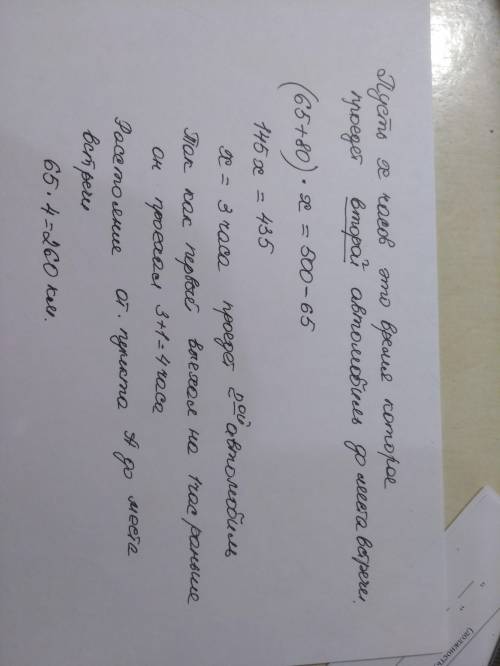 Пусть x часов это время которое
проедет второй автомобиль до места встречи.
(65+80)·x = 500-65
145x = 435
x = 3 часа проедет 2ой автомобиль
Так как первый выехал на 1час раньше
он проехал 3+1=4часа
Расстояние от пункта А до места
встречи
65·4=260 км.
(должность,